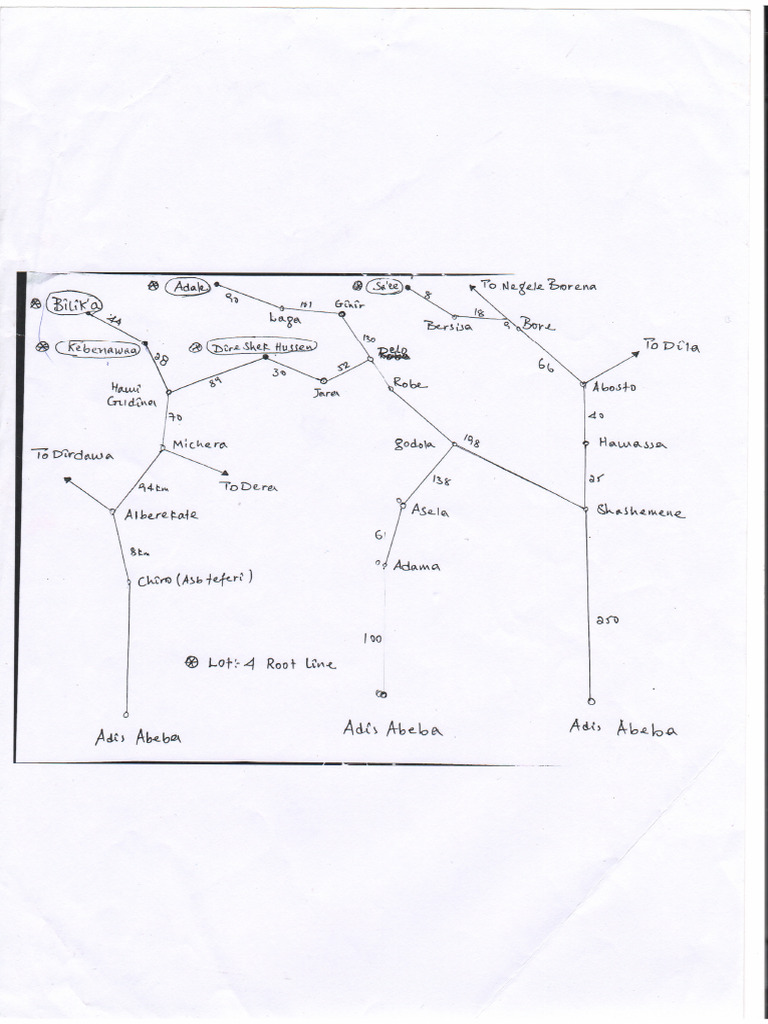 Adak
101
Ginir
Se'ee
8
To Negele Borena
Bilik'a
44
90
Laga
18
Bersisa
Bore
Kebenawaa
28
Dire Shek Hussen
130
Delo
To Dila
66
Hawi
Gudina
89
30
Jara
52
Robe
Abosto
70
40
Michera
godola
198
Hawassa
To Dirdawa
To Dera
138
25
94km
Asela
Alberekate
Shashemene
8km
Adama
Chiro (Asbteferi)
250
100
Lot:-4 Root Line
Adis Abeba
Adis Abeba
Adis Abeba